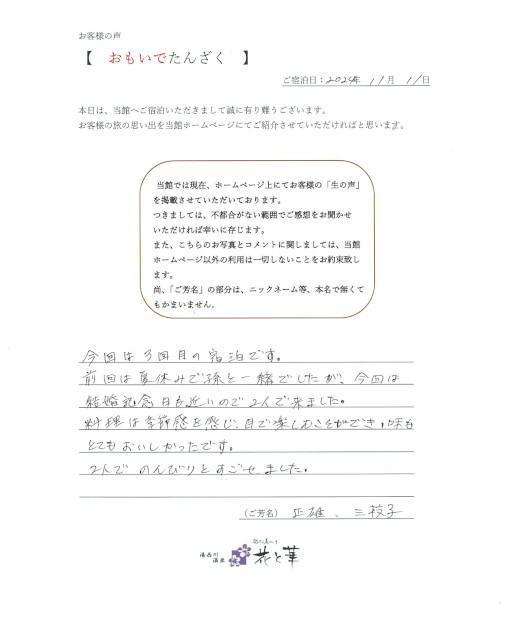 お客様の声
【 おもいでたんざく 】
ご宿泊日：2024年 11月 11日
本日は、当館へご宿泊いただきまして誠に有り難うございます。
お客様の旅の思い出を当館ホームページにてご紹介させていただければと思います。
当館では現在、ホームページ上にてお客様の「生の声」
を掲載させていただいております。
つきましては、不都合がない範囲でご感想をお聞かせ
いただければ幸いに存じます。
また、こちらのお写真とコメントに関しましては、当館
ホームページ以外の利用は一切しないことをお約束致し
ます。
尚、「ご芳名」の部分は、ニックネーム等、本名で無くて
もかまいません。
今回は3回目の宿泊です。
前回は夏休みで孫と一緒でしたが、今回は
結婚記念日も近いので2人で来ました。
料理は季節感を感じ、目で楽しむことができ、味も
とてもおいしかったです。
2人でのんびりとすごせました。
（ご芳名） 正雄、三枝子
湯西川
温泉
花と華